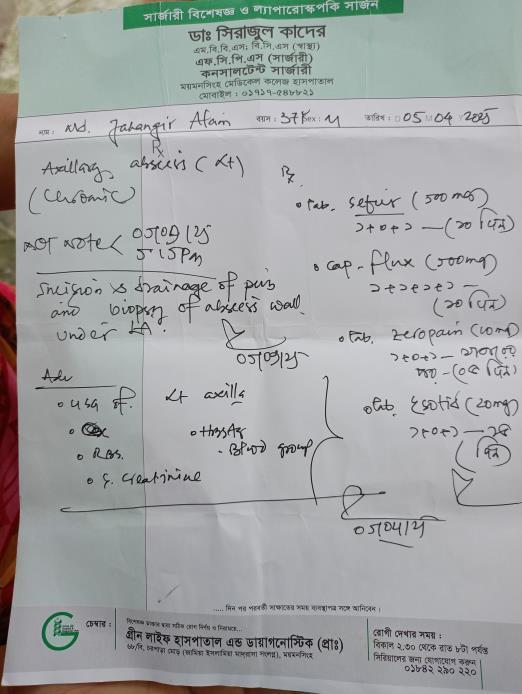 সার্জারী বিশেষজ্ঞ ও ল্যাপারোস্কপকি সার্জন
ডাঃ সিরাজুল কাদের
এম.বি.বি.এস; বি.সি.এস (স্বাস্থ্য)
এফ.সি.পি.এস (সার্জারী)
কনসালটেন্ট সার্জারী
ময়মনসিংহ মেডিকেল কলেজ হাসপাতাল
মোবাইল : ০১৭১৭-৫৪৮৮২১
নাম : Md. Jahangir Alam বয়স : 37 Sex : M তারিখ : 05 04 2025
Rx
Axillary abscess (Lt)
(Chronic)
OT Note
5:15PM
Incision & drainage of pus
and biopsy of abscess wall
under LA.
Adv
USG of Lt axilla
HBsAg
RBS. Blood group
S. creatinine
Rx
Tab. (500mg)
১+০+১ — (১০ দিন)
Cap - flux (500mg)
১+১+১+১ —
(১০ দিন)
Tab. Zeropain (10mg)
১+০+১ —
(০৫ দিন)
Tab. Esotid (20mg)
১+০+১ —
..... দিন পর পরবর্তী সাক্ষাতের সময় ব্যবস্থাপত্র সঙ্গে আনিবেন।
চেম্বার :
গ্রীন লাইফ হাসপাতাল এন্ড ডায়াগনোস্টিক (প্রাঃ)
৬৮/বি, চরপাড়া মোড় (জামিয়া ইসলামিয়া মাদ্রাসা সংলগ্ন), ময়মনসিংহ
রোগী দেখার সময় :
বিকাল ২.৩০ থেকে রাত ৮টা পর্যন্ত
সিরিয়ালের জন্য যোগাযোগ করুন
০১৮৪২ ২৯০ ২২০